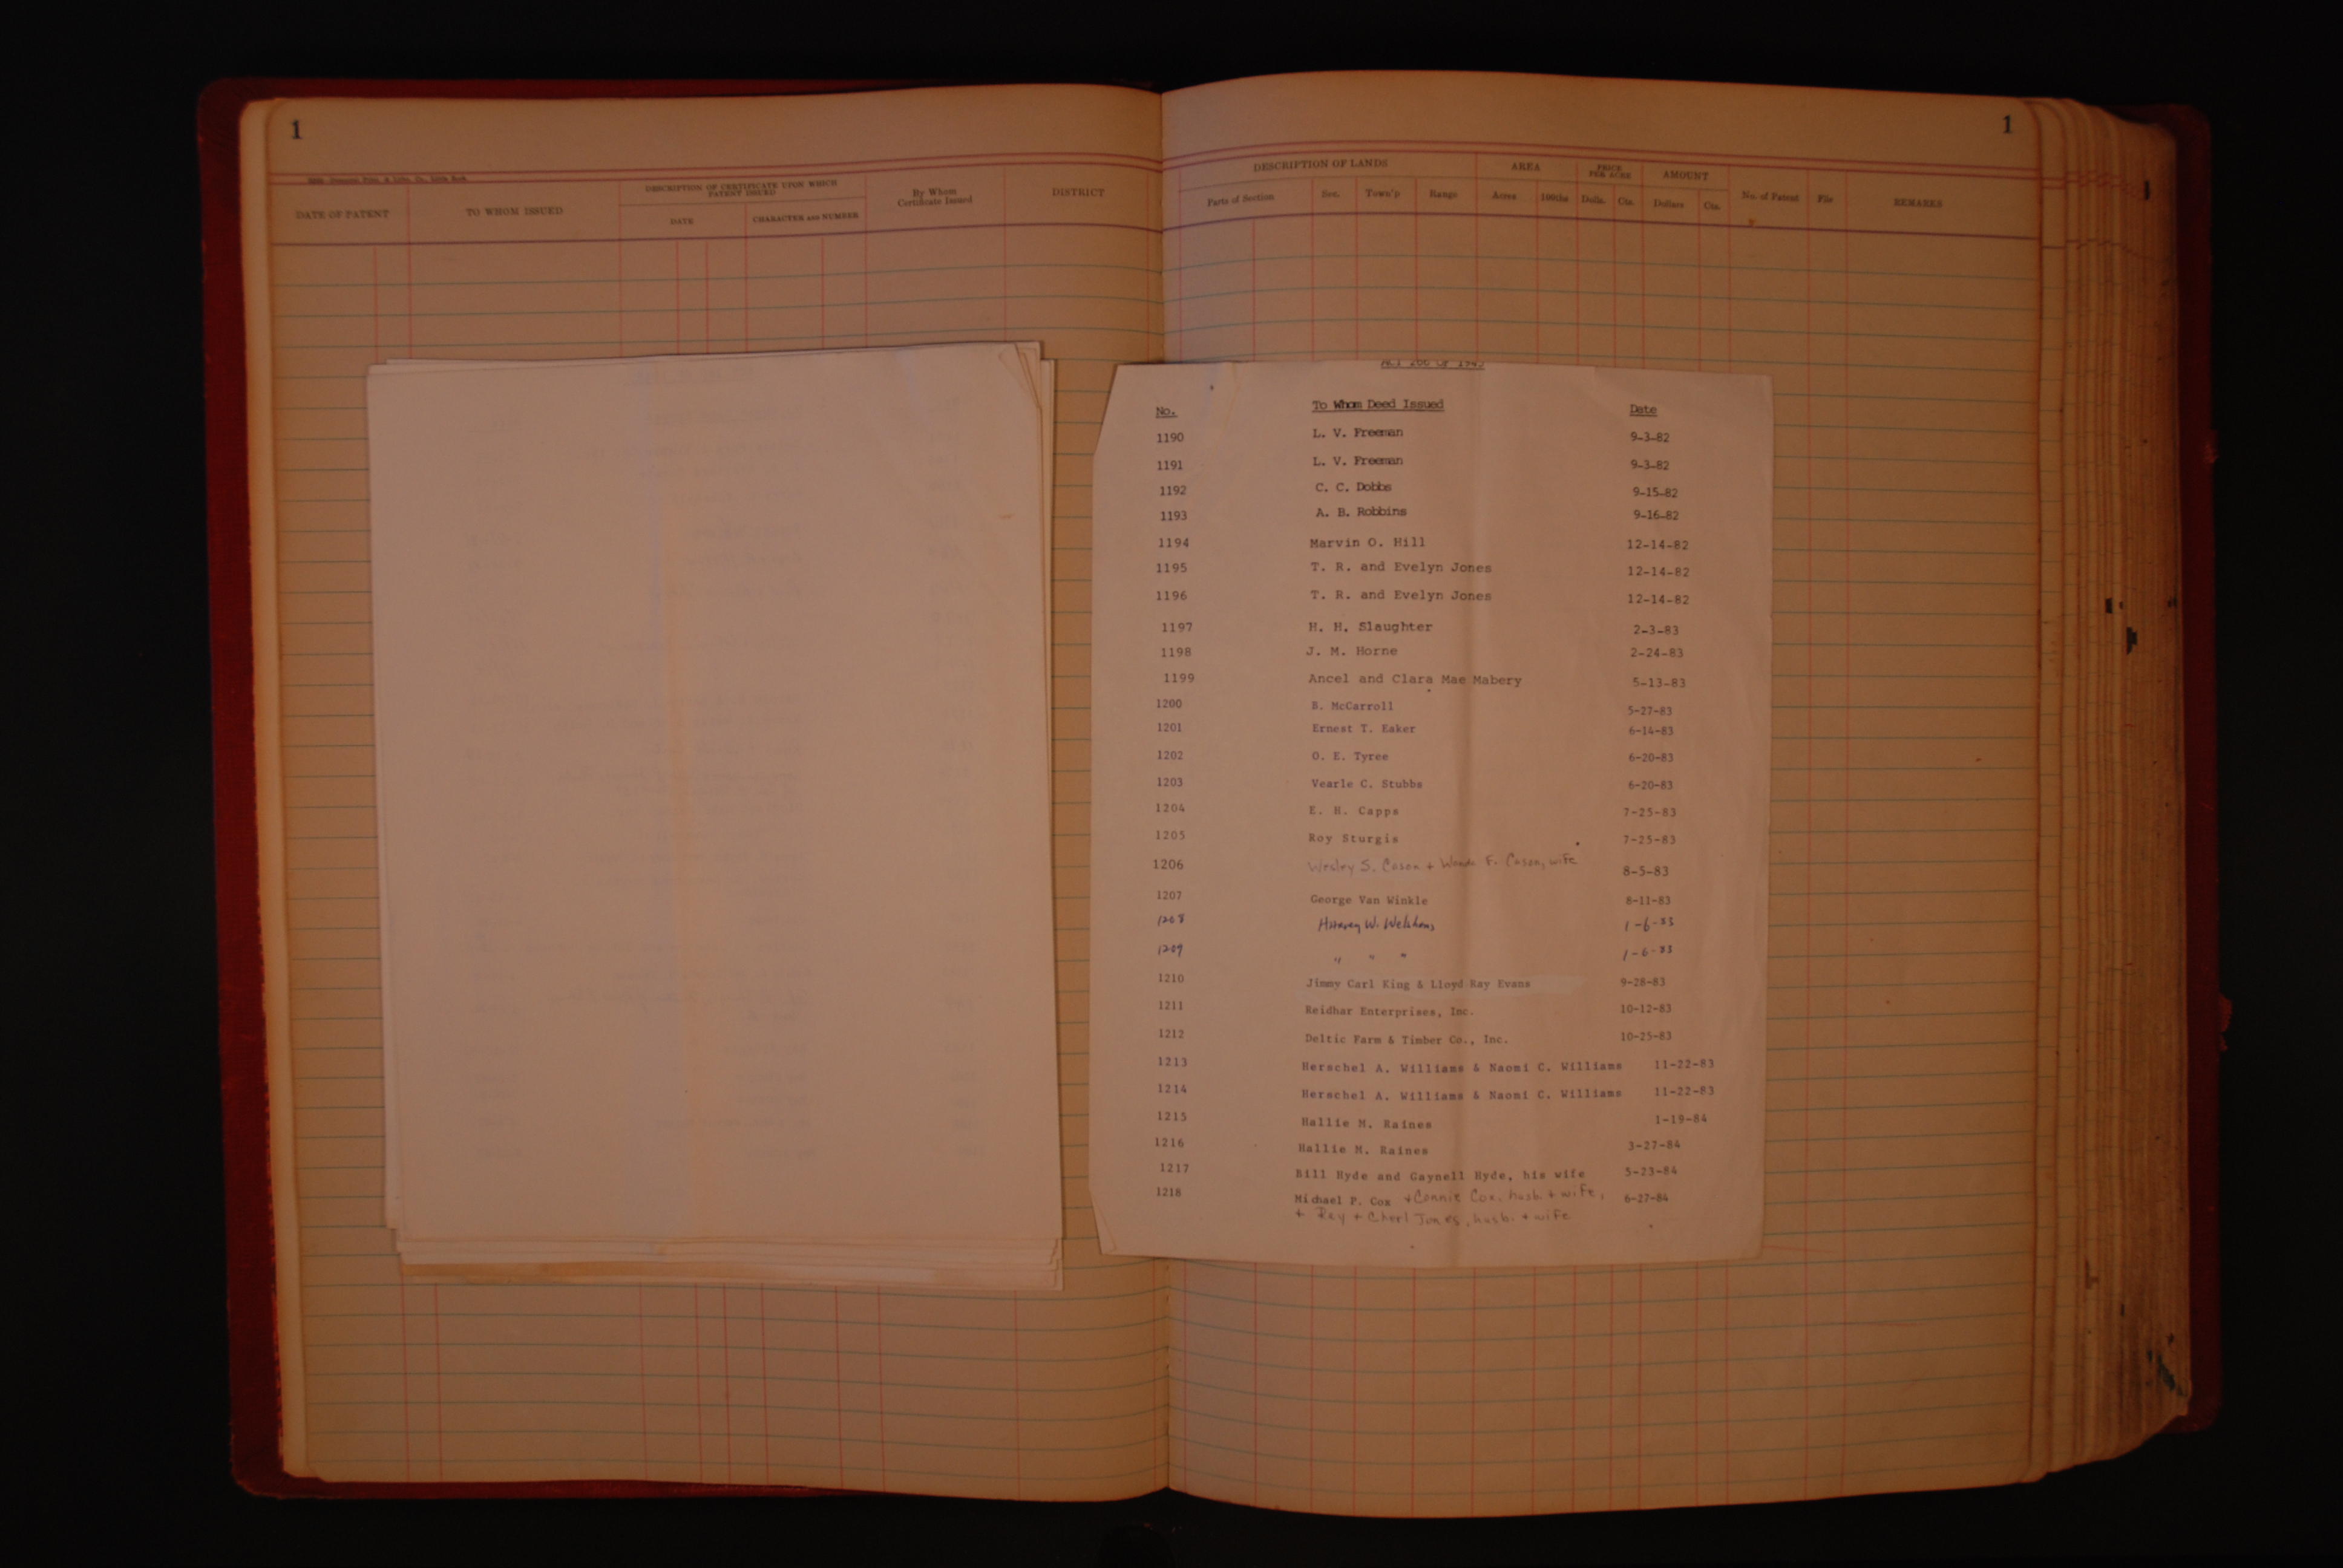 1
DATE OF PATENT
TO WHOM ISSUED
DESCRIPTION OF CERTIFICATE UPON WHICH
PATENT ISSUED
DATE
CHARACTER AND NUMBER
By Whom
Certificate Issued
DISTRICT
1
DESCRIPTION OF LANDS
Parts of Section
Sec.
Town'p
Range
AREA
Acres
100ths
PRICE
PER ACRE
Dolls.
Cts.
AMOUNT
Dollars
Cts.
No. of Patent
File
REMARKS
No. To Whom Deed Issued Date
1190 L. V. Freeman 9-3-82
1191 L. V. Freeman 9-3-82
1192 C. C. Dobbs 9-15-82
1193 A. B. Robbins 9-16-82
1194 Marvin O. Hill 12-14-82
1195 T. R. and Evelyn Jones 12-14-82
1196 T. R. and Evelyn Jones 12-14-82
1197 H. H. Slaughter 2-3-83
1198 J. M. Horne 2-24-83
1199 Ancel and Clara Mae Mabery 5-13-83
1200 B. McCarroll 5-27-83
1201 Ernest T. Eaker 6-14-83
1202 O. E. Tyree 6-20-83
1203 Vearle C. Stubbs 6-20-83
1204 E. H. Capps 7-25-83
1205 Roy Sturgis 7-25-83
1206 Wesley S. Cason + F. Cason, wife 8-5-83
1207 George Van Winkle 8-11-83
1208 W. 1-6-83
1209 " " " 1-6-83
1210 Jimmy Carl King & Lloyd Ray Evans 9-28-83
1211 Reidhar Enterprises, Inc. 10-12-83
1212 Deltic Farm & Timber Co., Inc. 10-25-83
1213 Herschel A. Williams & Naomi C. Williams 11-22-83
1214 Herschel A. Williams & Naomi C. Williams 11-22-83
1215 Hallie M. Raines 1-19-84
1216 Hallie M. Raines 3-27-84
1217 Bill Hyde and Gaynell Hyde, his wife 5-23-84
1218 Michael P. Cox + Connie Cox, husb. + wife, 6-27-84
+ Ray + Cherl Jones, husb. + wife